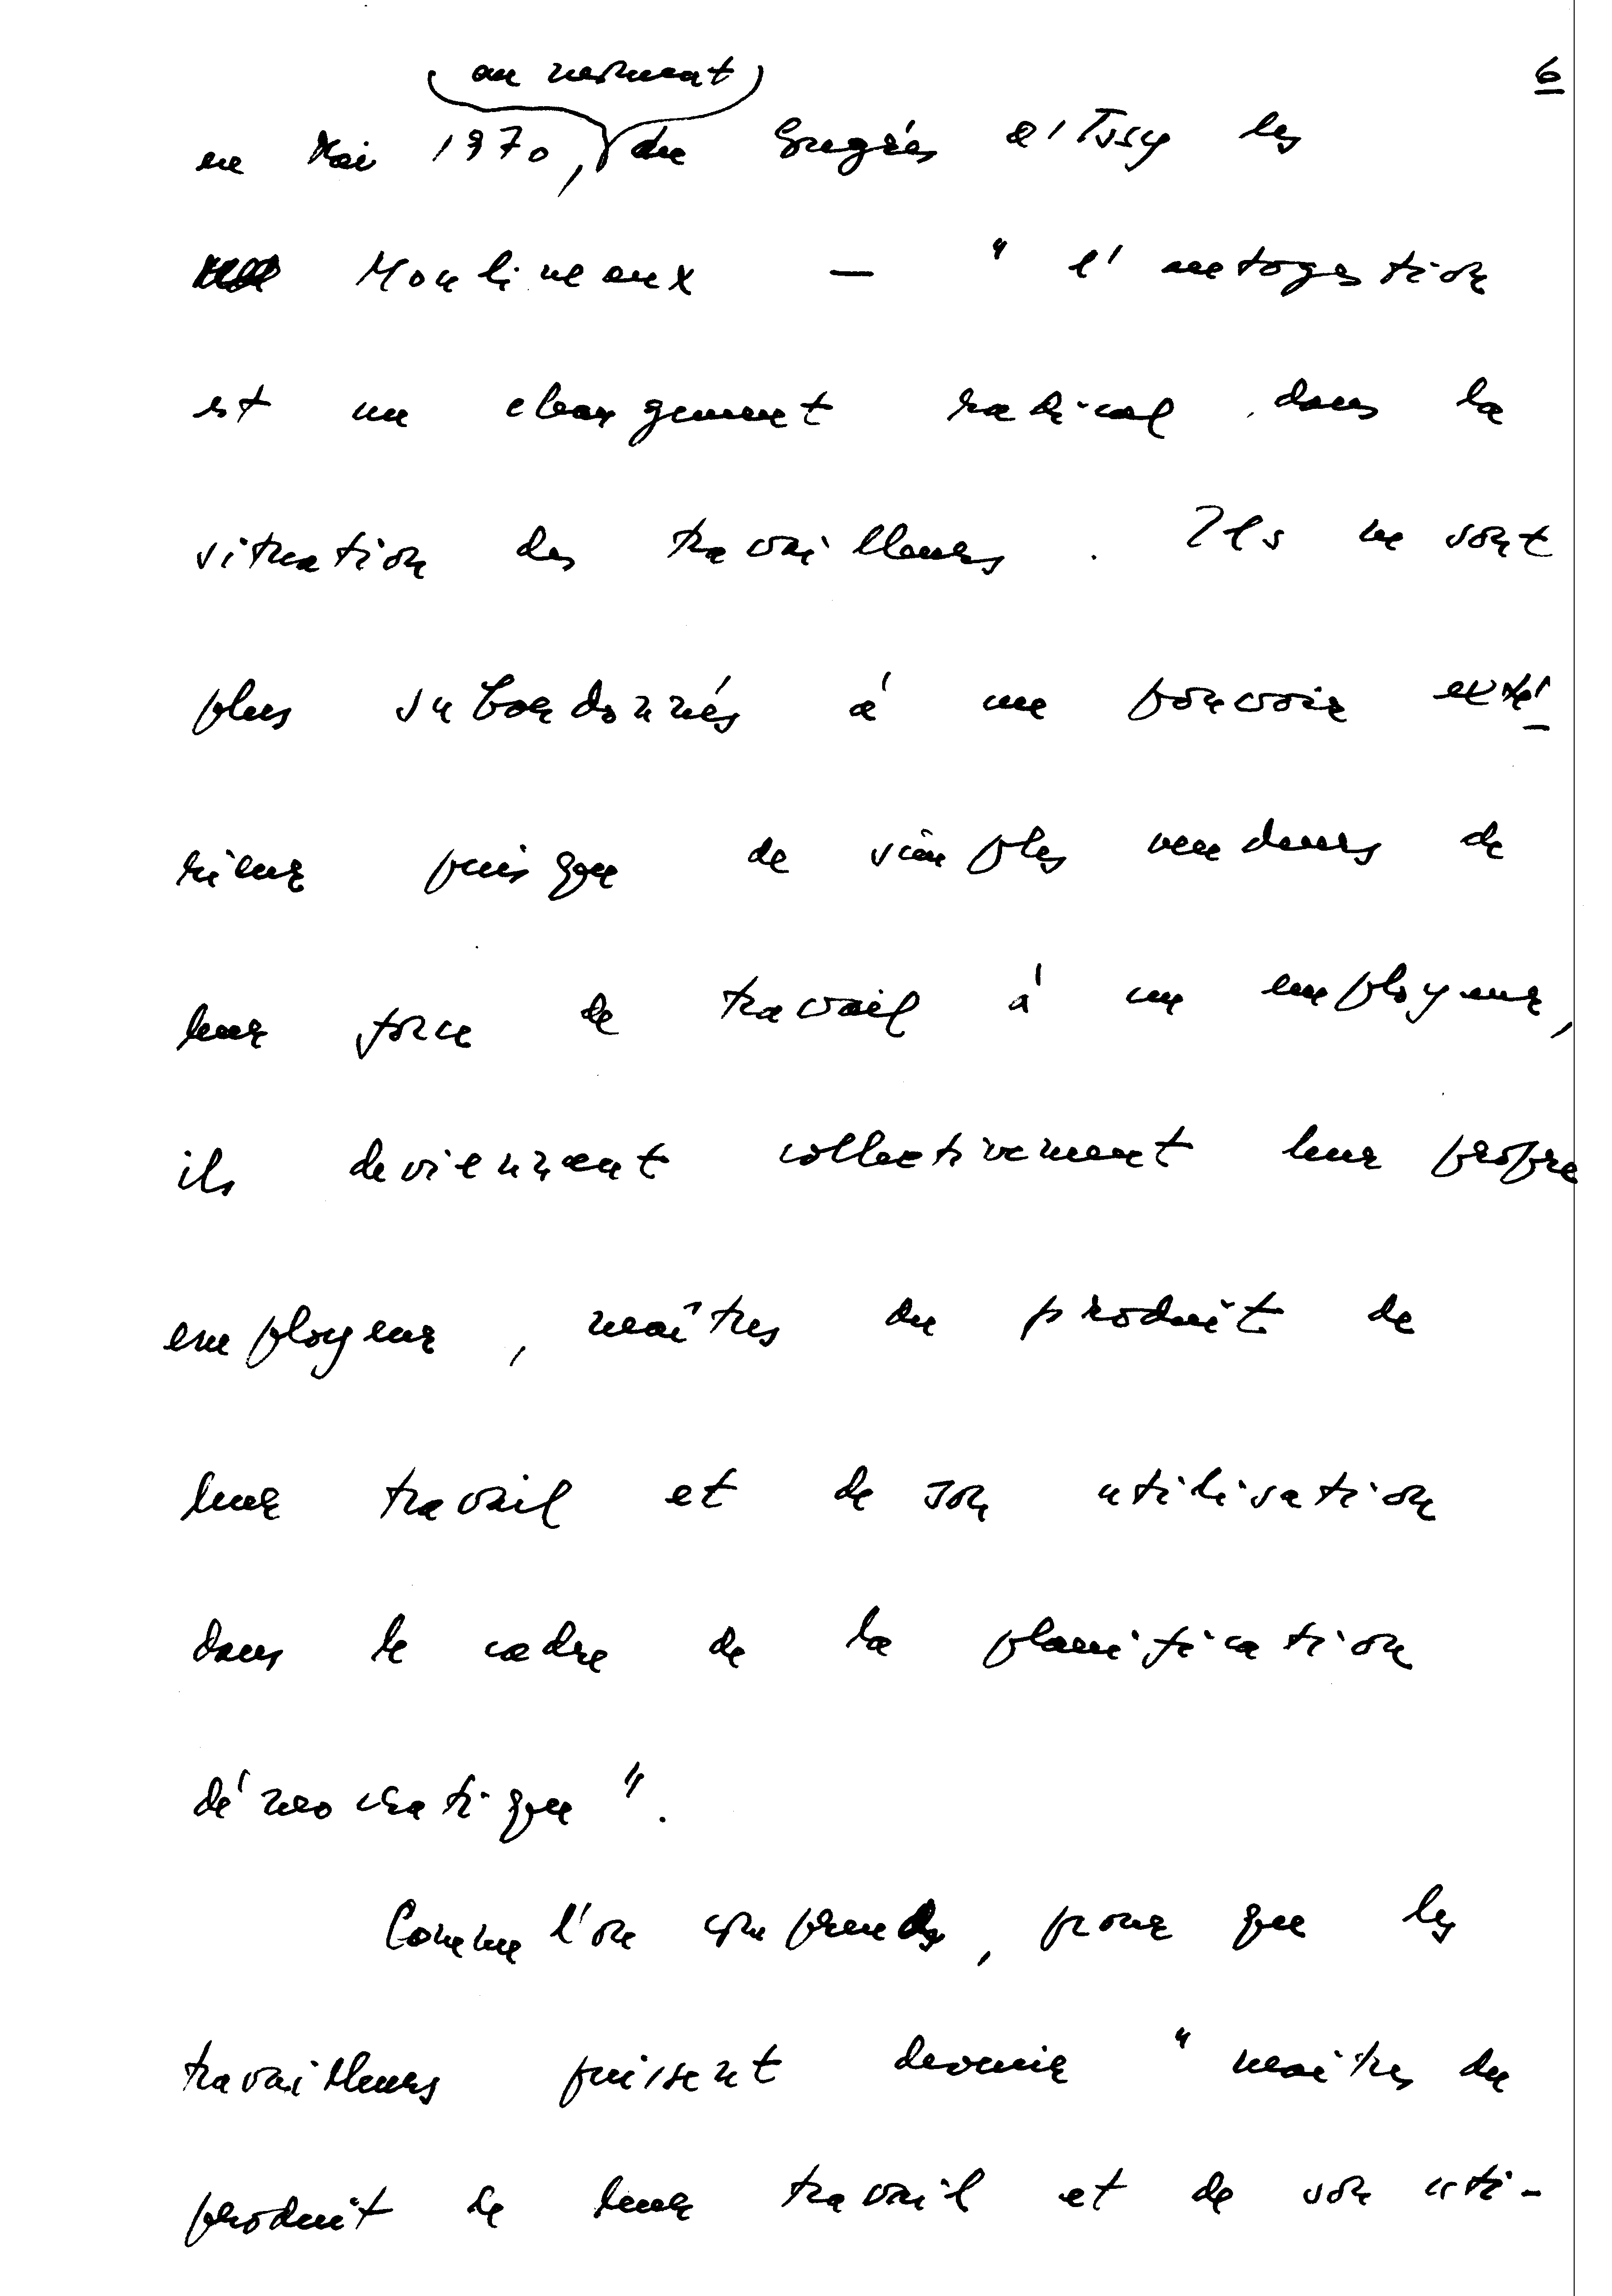 6
au moment
en Mai 1970, du Congrès d'Issy les
Moulineaux — " l'autogestion
est un changement radical dans la
situation des travailleurs. Ils ne sont
plus subordonnés à un pouvoir exté-
rieur puisque de simples vendeurs de
leur force de travail à un employeur,
ils deviennent collectivement leur propre
employeur, maîtres du produit de
leur travail et de son utilisation
dans le cadre de la planification
démocratique ".
Comme l'on comprends, pour que les
travailleurs puissent devenir " maîtres du
produit de leur travail et de son uti-